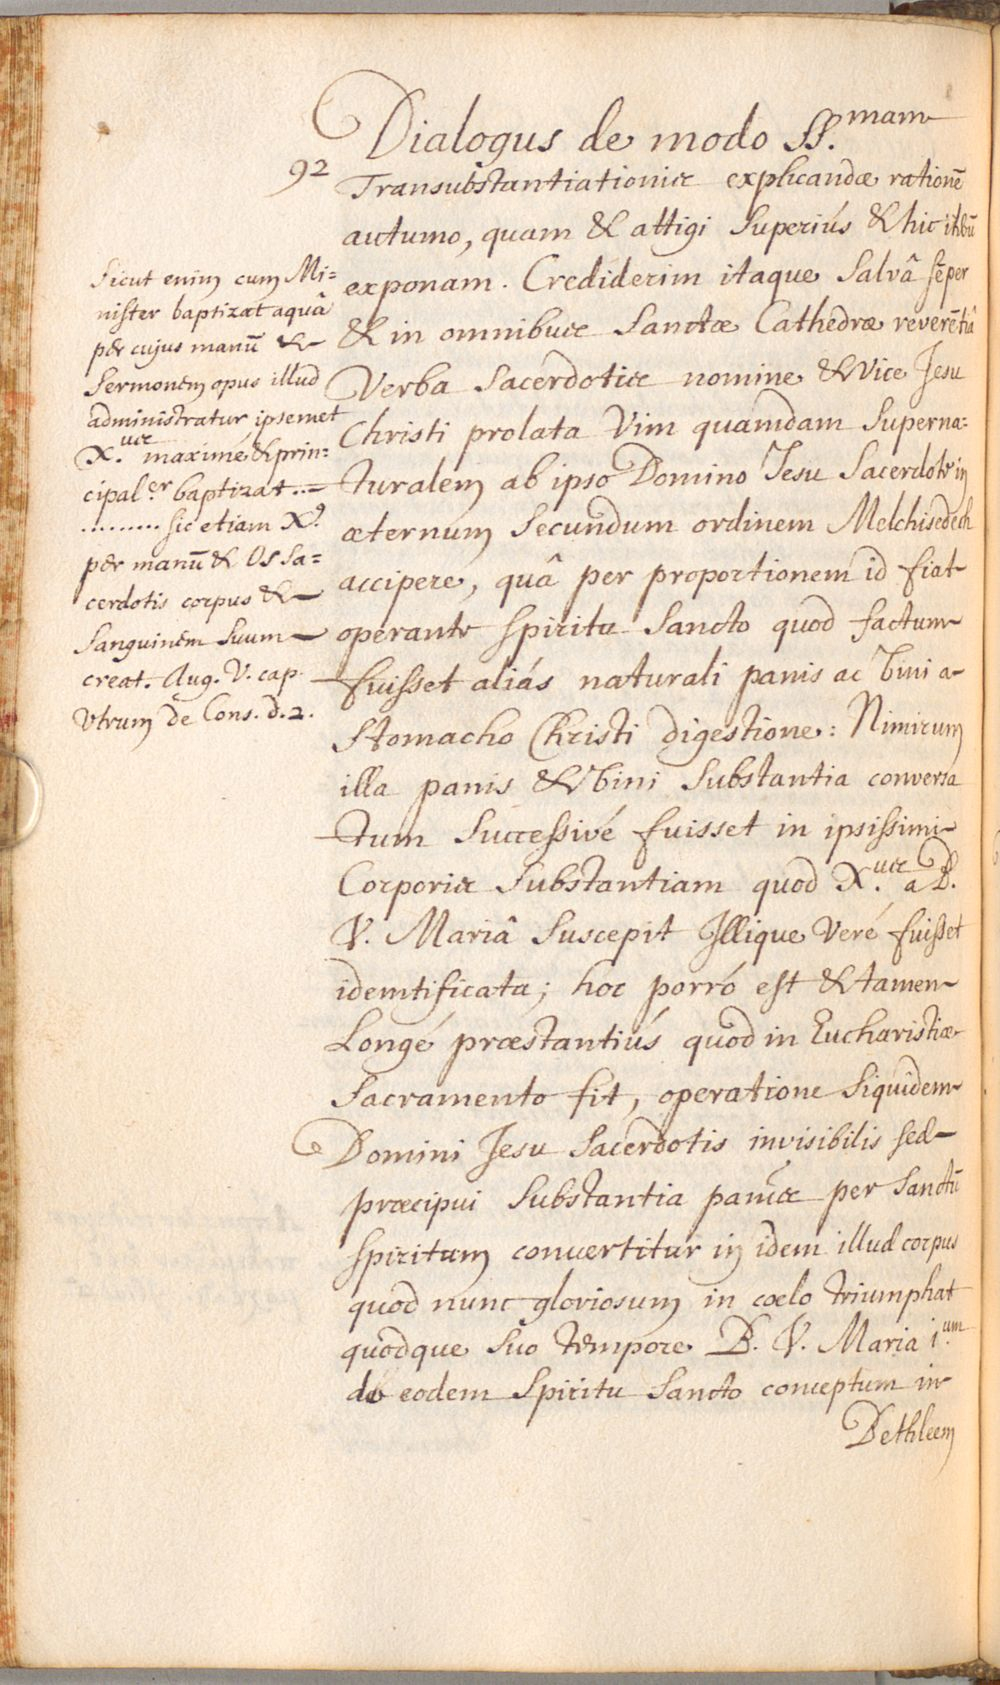 Dialogus de modo SS.mam
92
Transubstantiationis explicandæ rationē
autumo, quam & attigi Superiús & hic itēū
exponam. Crediderim itaque Salvâ sēper
& in omnibus Sanctæ Cathedræ reverētiâ
Verba Sacerdotis nomine & Vice Jesu
Christi prolata Vim quamdam Superna=
turalem ab ipso Domino Jesu Sacerdote in
æternum Secundum ordinem Melchisedech
accipere, quâ per proportionem id fiat
operante Spiritu Sancto quod factum
fuisset aliás naturali panis ac Vini a
Stomacho Christi digestione: Nimirum
illa panis & Vini Substantia conversa
tum Successivé fuisset in ipsissimi
Corporis Substantiam quod X.us a B.
V. Mariâ Suscepit Illique Veré fuisset
idemtificata; hoc porró est & tamen
Longé præstantiús quod in Eucharistiæ
Sacramento fit, operatione Siquidem
Domini Jesu Sacerdotis invisibilis sed
præcipui Substantia panis per Sanctū
Spiritum convertitur in idem illud corpus
quod nunc gloriosum in cœlo triumphat
quodque Suo tempore B. V. Maria i.um
de eodem Spiritu Sancto conceptum in
Bethleem
Sicut enim cum Mi=
nister baptizat aquâ
per cujus manū &
Sermonem opus illud
administratur ipsemet
X.us maximé & prin=
cipal.er baptizat ..
......... sic etiam X.9
per manū & Os Sa=
cerdotis corpus &
Sanguinem Suum
creat. Aug. V. cap.
Utrum de Cons. d. 2.